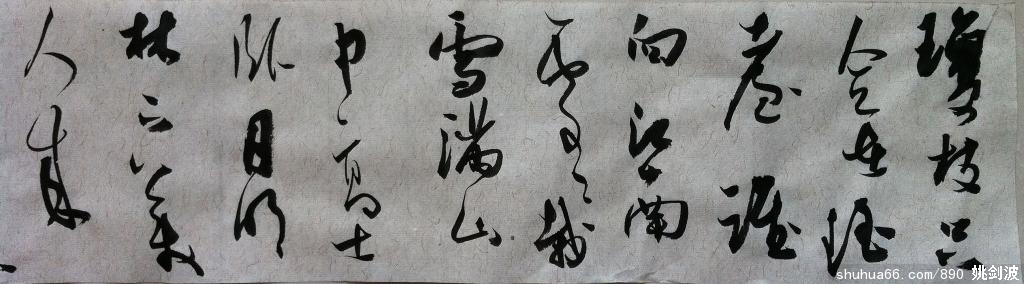 瓊枝只
合在瑶
臺誰
向江南
處處栽
雪满山
中高士
卧月明
林下美
人来
shuhua66.com/890 姚剑波